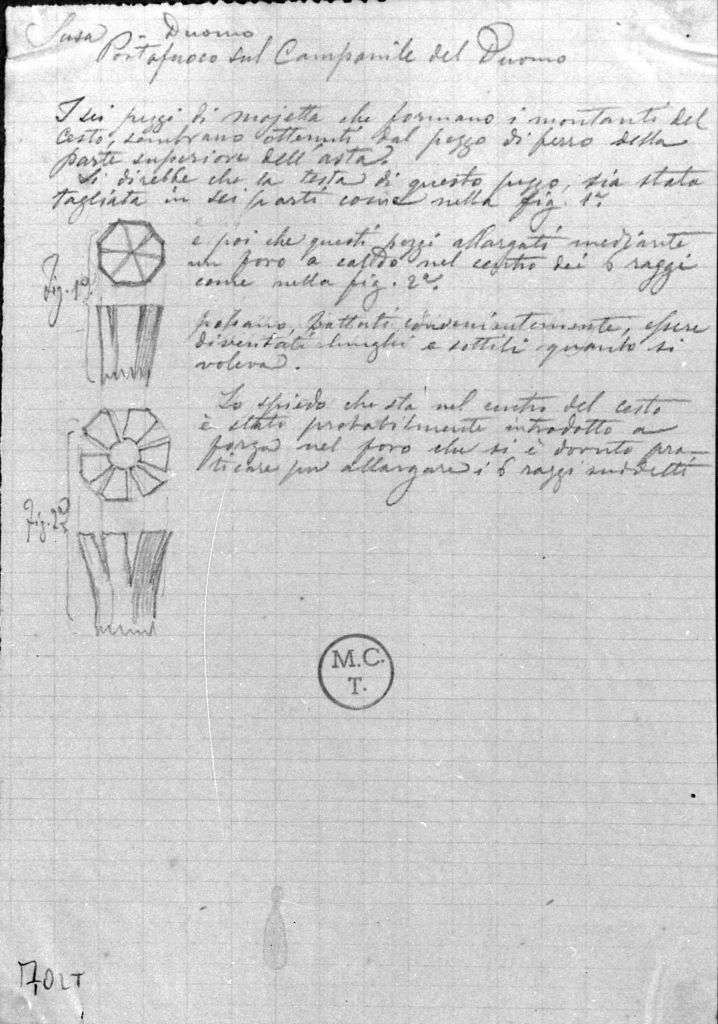 Susa Duomo
Portafuoco sul Campanile del Duomo
I sei pezzi di mojetta che formano i montanti del
cesto, sembrano ottenuti dal pezzo di ferro della
parte superiore dell'asta.
Si direbbe che la testa di questo pezzo, sia stata
tagliata in sei parti come nella fig. 1ª.
e poi che questi pezzi allargati mediante
un foro a caldo nel centro dei 6 raggi
come nella fig. 2ª.
Fig. 1ª
possano, battuti convenientemente, essere
diventati lunghi e sottili quanto si
voleva.
Lo spiedo che sta nel centro del cesto
è stato probabilmente introdotto a
forza nel foro che si è dovuto pra-
ticare per allargare i 6 raggi suddetti
Fig. 2ª
M.C.
T.